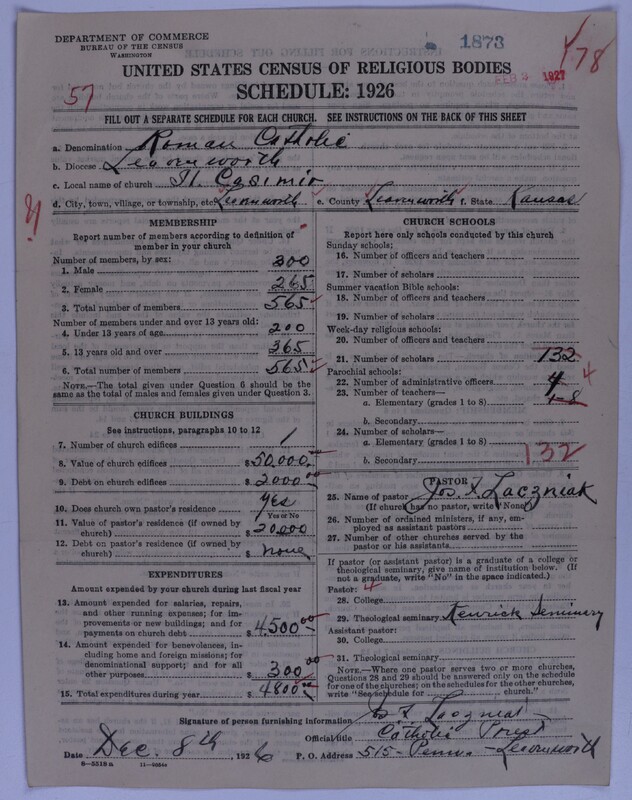 DEPARTMENT OF COMMERCE
BUREAU OF THE CENSUS
WASHINGTON
1873
178
UNITED STATES CENSUS OF RELIGIOUS BODIES
FEB 2 1927
57
SCHEDULE: 1926
FILL OUT A SEPARATE SCHEDULE FOR EACH CHURCH. SEE INSTRUCTIONS ON THE BACK OF THIS SHEET
a. Denomination Roman Catholic
b. Diocese Leavenworth
c. Local name of church St. Casimir
d. City, town, village, or township, etc. Leavenworth e. County Leavenworth f. State Kansas
MEMBERSHIP
Report number of members according to definition of member in your church
Number of members, by sex:
1. Male 300
2. Female 265
3. Total number of members 565
Number of members under and over 13 years old:
4. Under 13 years of age 200
5. 13 years old and over 365
6. Total number of members 565
NOTE.—The total given under Question 6 should be the same as the total of males and females given under Question 3.
CHURCH BUILDINGS
See instructions, paragraphs 10 to 12
7. Number of church edifices 1
8. Value of church edifices $ 50,000.00
9. Debt on church edifices $ 2000.00
10. Does church own pastor's residence yes
Yes or No
11. Value of pastor's residence (if owned by church) $ 20,000
12. Debt on pastor's residence (if owned by church) $ none
EXPENDITURES
Amount expended by your church during last fiscal year
13. Amount expended for salaries, repairs, and other running expenses; for improvements or new buildings; and for payments on church debt $ 4500.00
14. Amount expended for benevolences, including home and foreign missions; for denominational support; and for all other purposes $ 300.00
15. Total expenditures during year $ 4800.00
CHURCH SCHOOLS
Report here only schools conducted by this church
Sunday schools:
16. Number of officers and teachers
17. Number of scholars
Summer vacation Bible schools:
18. Number of officers and teachers
19. Number of scholars
Week-day religious schools:
20. Number of officers and teachers
21. Number of scholars 132
Parochial schools:
22. Number of administrative officers 4 4
23. Number of teachers—
a. Elementary (grades 1 to 8)
b. Secondary
24. Number of scholars—
a. Elementary (grades 1 to 8)
b. Secondary 132
PASTOR
25. Name of pastor Jos. F. Laczniak
(If church has no pastor, write "None")
26. Number of ordained ministers, if any, employed as assistant pastors
27. Number of other churches served by the pastor or his assistants
If pastor (or assistant pastor) is a graduate of a college or theological seminary, give name of institution below. (If not a graduate, write "No" in the space indicated.)
Pastor: 4
28. College
29. Theological seminary Kenrick Seminary
Assistant pastor:
30. College
31. Theological seminary
NOTE.—Where one pastor serves two or more churches, Questions 28 and 29 should be answered only on the schedule for one of the churches; on the schedules for the other churches, write "See schedule for church."
Signature of person furnishing information Jos F. Laczniak
Official title Catholic Priest
Date Dec. 8th, 1926 P. O. Address 515 - Penn. - Leavenworth
8—5518 a 11—9064